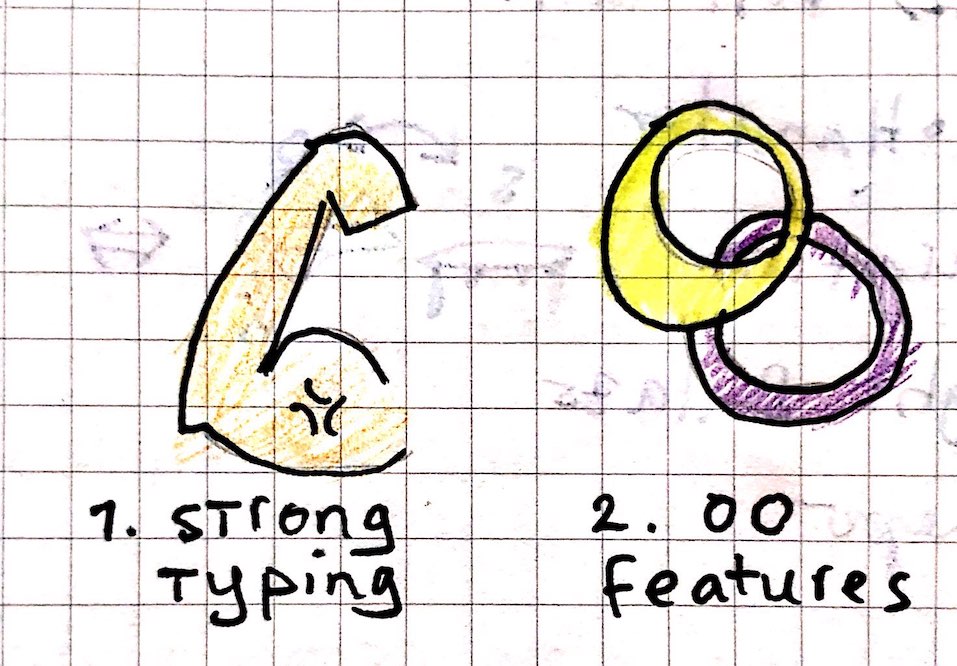 1. Strong
Typing
2. OO
features